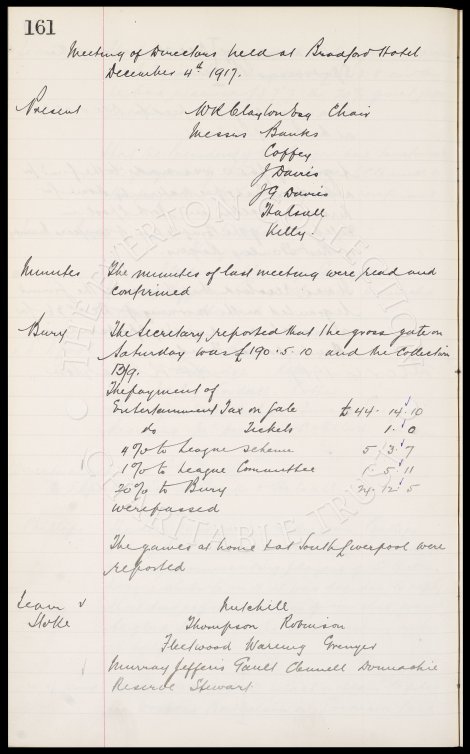 161
Meeting of Directors held at Bradford Hotel
December 4th 1917.
Present W R Clayton Esq Chair
Messrs Banks
Coffey
J Davies
J G Davies
Halsall
Kelly.
Minutes The minutes of last meeting were read and
confirmed
Bury The Secretary reported that the gross gate on
Saturday was £190.5.10 and the Collection
13/9.
The payment of
Entertainment Tax on Gate £44.14.10
do Tickets 1.0
4% to League Scheme 5.3.7
1% to League Committee 1.5.11
20% to Bury 24.12.5
were passed
The games at home & at South Liverpool were
reported
Team v Mitchell
Stoke Thompson Robinson
Fleetwood Wareing Grenyer
Murray Jefferis Gault Clennell Donnachie
Reserve Stewart
THE EVERTON COLLECTION
CHARITABLE TRUST